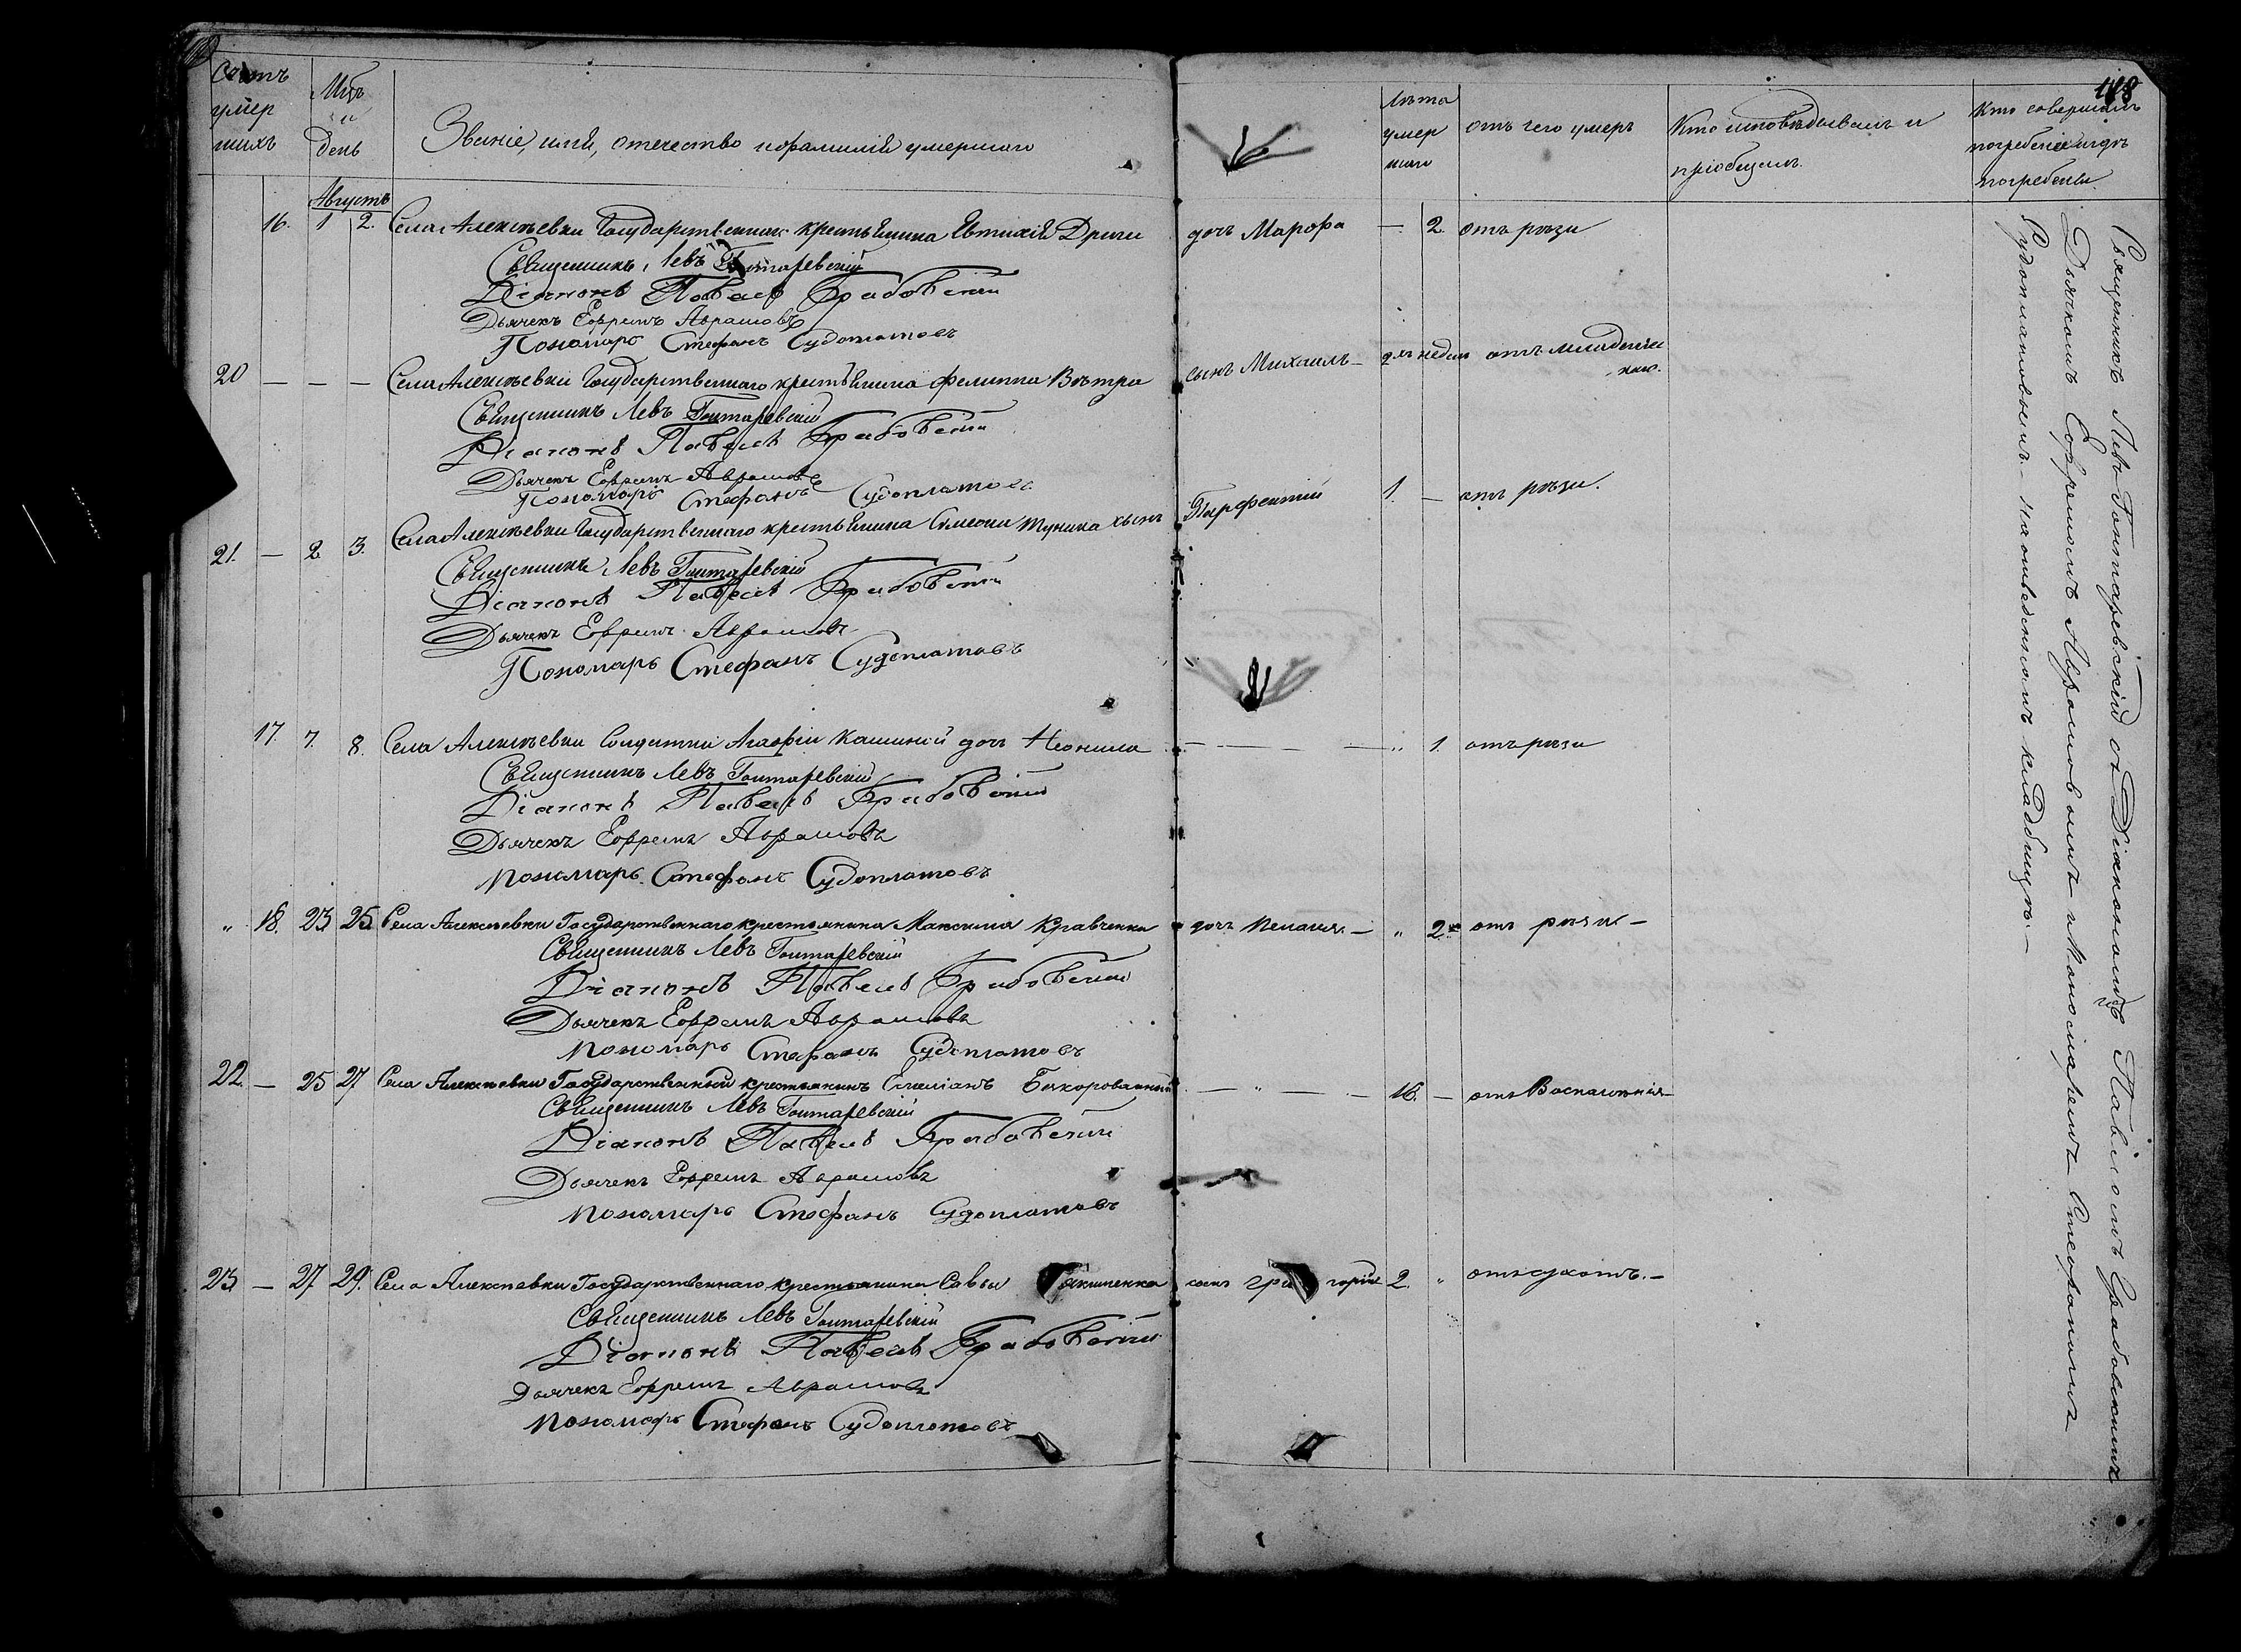 118
Счетъ умершихъ
Мцъ и день
Званіе, имя, отечество и фамилія умершаго
Лѣта умершаго
отъ чего умеръ
Кто исповѣдывалъ и пріобщалъ.
Кто совершалъ погребеніе и гдѣ погребены.
Августъ
16. 1 2. Села Алексѣевки Государственнаго крестьянина Евтихія Дриги дочь Марфа — 2. отъ рѣзи
Священникъ Левъ Гонтаревскій
Діаконъ Павелъ Грабовскій
Дьячекъ Ефремъ Аврамовъ
Пономарь Стефанъ Судоплатовъ
20 — — — Села Алексѣевки Государственнаго крестьянина Филиппа Вѣтра сынъ Михаилъ — недели отъ младенческаго.
Священникъ Левъ Гонтаревскій
Діаконъ Павелъ Грабовскій
Дьячекъ Ефремъ Аврамовъ
Пономарь Стефанъ Судоплатовъ
21. — 2 3. Села Алексѣевки Государственнаго крестьянина Симеона Туника сынъ Парфентій 1. — отъ рѣзи.
Священникъ Левъ Гонтаревскій
Діаконъ Павелъ Грабовскій
Дьячекъ Ефремъ Аврамовъ
Пономарь Стефанъ Судоплатовъ
17. 7. 8. Села Алексѣевки Солдатки Агафіи Кашиной дочь Неонила — — — — „ 1. отъ рѣзи
Священникъ Левъ Гонтаревскій
Діаконъ Павелъ Грабовскій
Дьячекъ Ефремъ Аврамовъ
Пономарь Стефанъ Судоплатовъ
„ 18. 23 25 Села Алексѣевки Государственнаго крестьянина Максима Кравченка дочь Пелагія. — „ 2 отъ рѣзи —
Священникъ Левъ Гонтаревскій
Діаконъ Павелъ Грабовскій
Дьячекъ Ефремъ Аврамовъ
Пономарь Стефанъ Судоплатовъ
22 — 25 27 Села Алексѣевки Государственный крестьянинъ Емеліанъ — „ — 16. — отъ Воспаленія —
Священникъ Левъ Гонтаревскій
Діаконъ Павелъ Грабовскій
Дьячекъ Ефремъ Аврамовъ
Пономарь Стефанъ Судоплатовъ
23 — 27 29. Села Алексѣевки Государственнаго крестьянина Савы сынъ Григорій 2. „ отъ сухотъ. —
Священникъ Левъ Гонтаревскій
Діаконъ Павелъ Грабовскій
Дьячекъ Ефремъ Аврамовъ
Пономарь Стефанъ Судоплатовъ
Священникъ Левъ Гонтаревскій съ Діакономъ Павломъ Грабовскимъ
Дьячкомъ Ефремомъ Аврамовымъ и Пономаремъ Стефаномъ
Судоплатовымъ. — на отведенномъ кладбищѣ. —